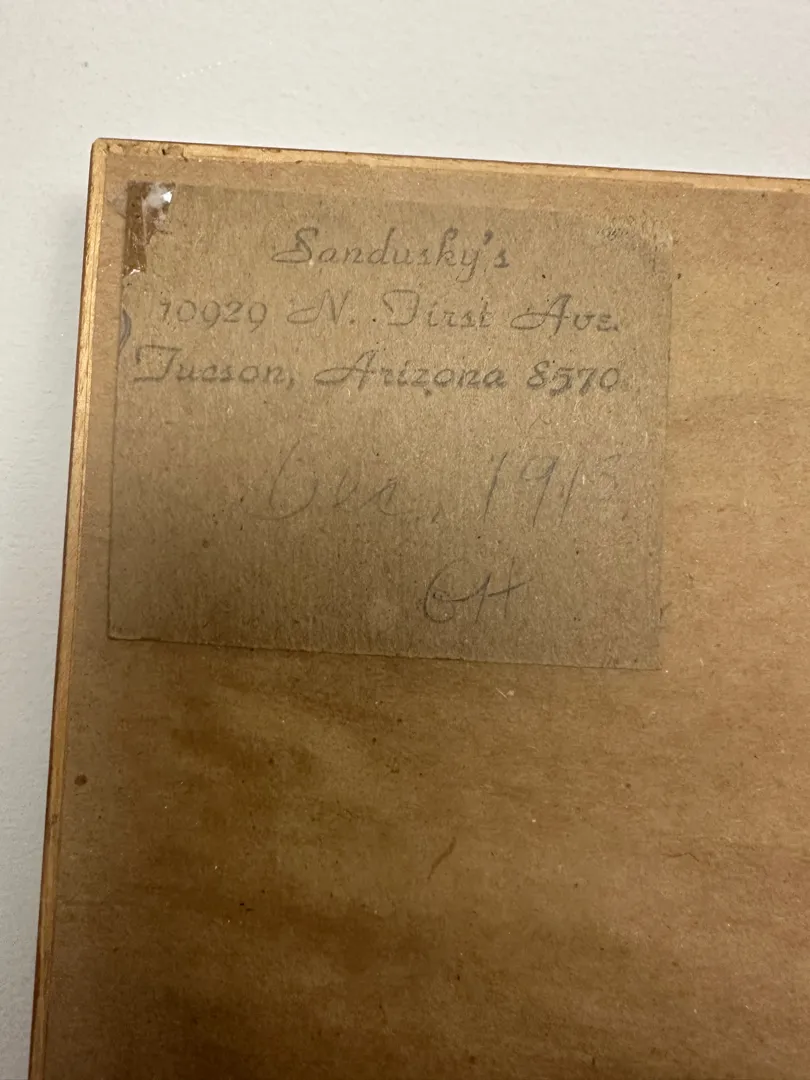 Sandusky's
10929 N. First Ave.
Tucson, Arizona 8570
Dec, 1913